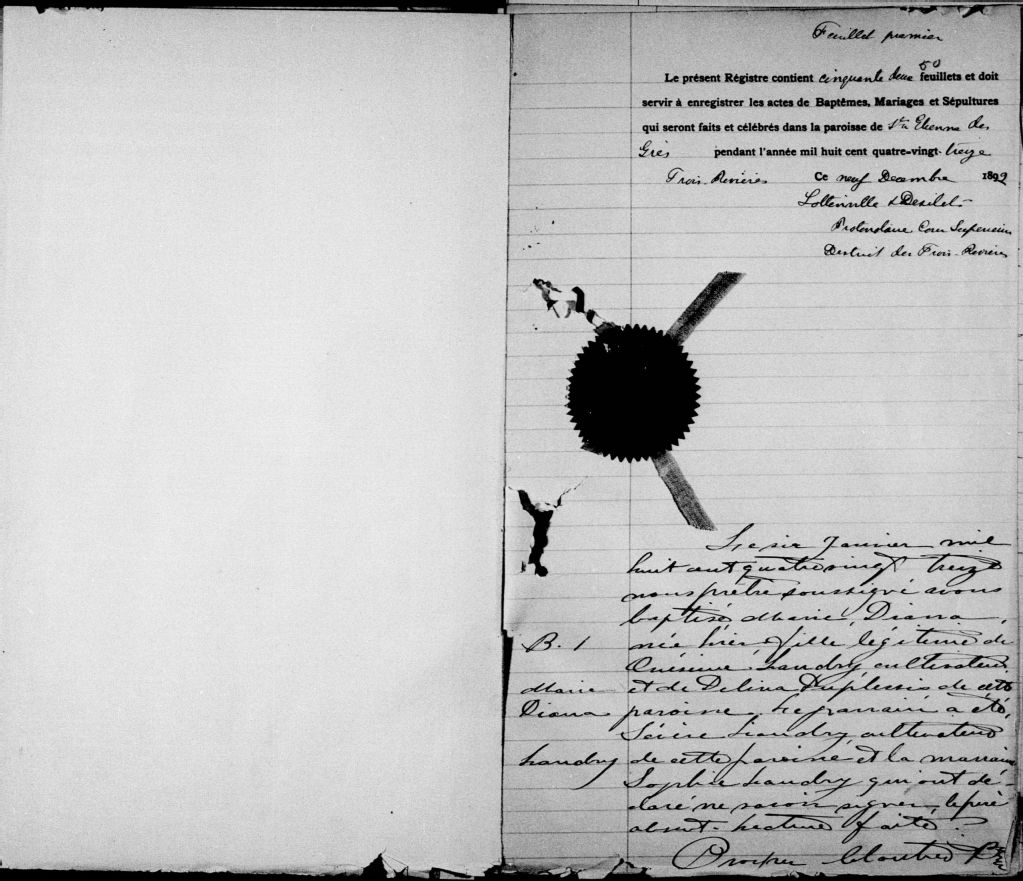 Feuillet premier
50
Le présent Régistre contient cinquante deux feuillets et doit
servir à enregistrer les actes de Baptêmes, Mariages et Sépultures
qui seront faits et célébrés dans la paroisse de St Etienne des
Grès pendant l'année mil huit cent quatre-vingt-treize
Trois-Rivières Ce neuf Decembre 1892
Lottinville & Desilets
Protonotaire Cour Superieure
District des Trois-Rivières
Le six Janvier mil
huit cent quatre vingt treize
nous prêtre soussigné avons
baptisé Marie, Diana,
B. 1 née hier, fille légitime de
Onésime Landry cultivateur
Marie et de Delina Duplessis de cette
Diana paroisse. Le parrain a été,
Sévère Landry, cultivateur
Landry de cette paroisse et la marraine
Sophie Landry qui ont dé-
claré ne savoir signer, le père
absent. Lecture faite.
Prosper Cloutier Ptre